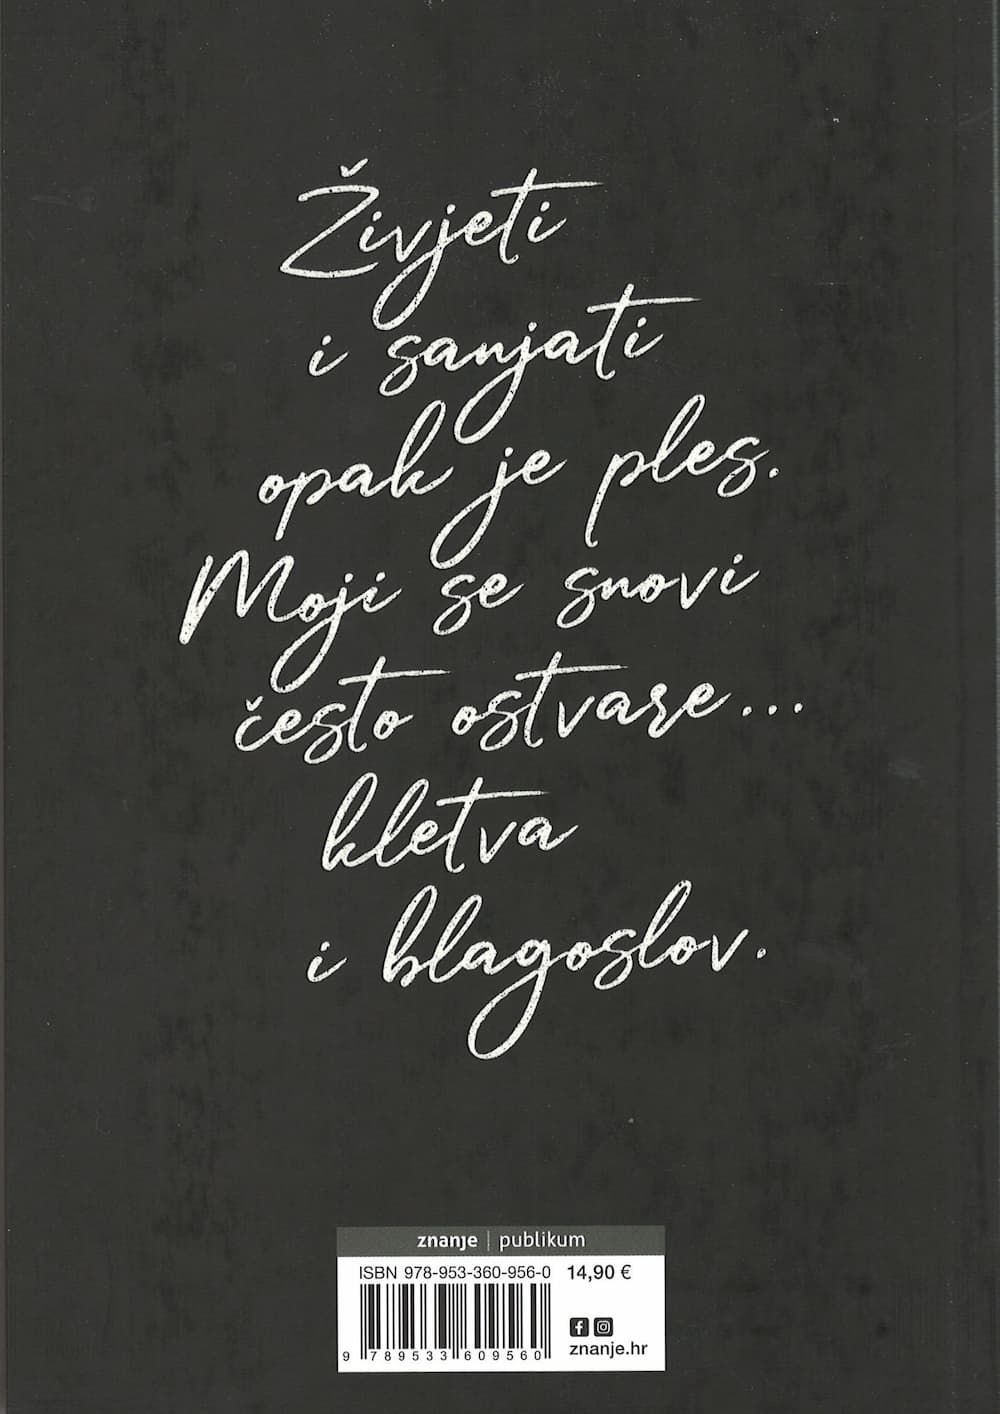 Živjeti
i sanjati
opak je ples.
Moji se snovi
često ostvare...
kletva
i blagoslov.
znanje | publikum
ISBN 978-953-360-956-0 14,90 €
9 789533 609560
znanje.hr